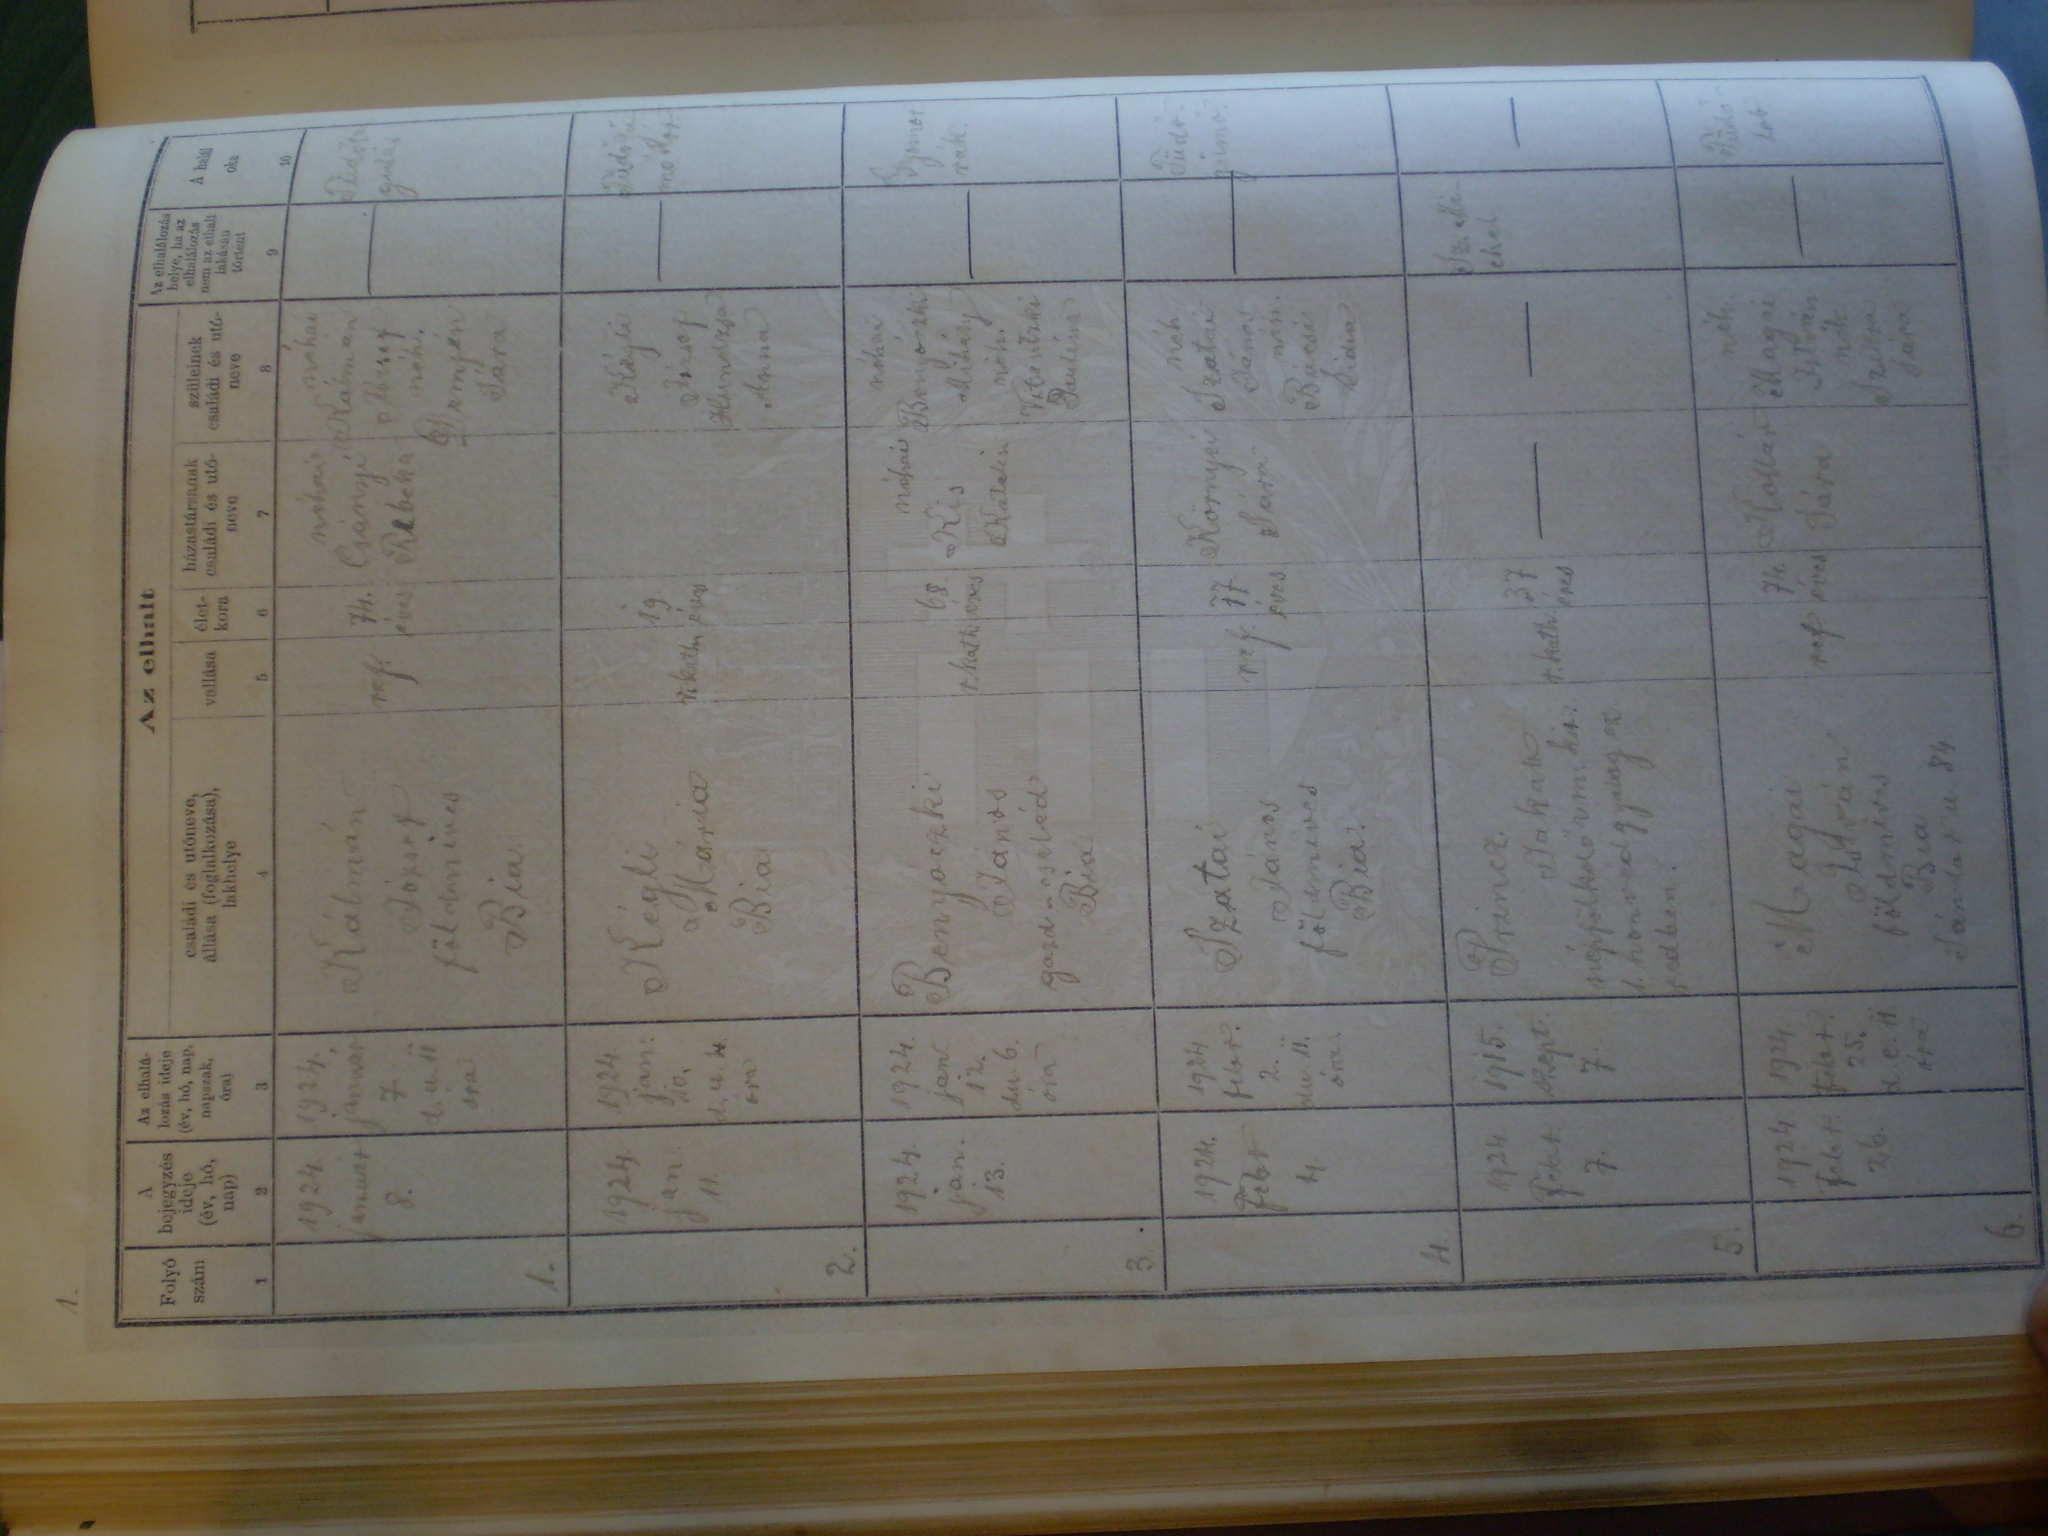 1.
Az elhalt
Folyó
szám
A
bejegyzés
ideje
(év, hó,
nap)
Az elhalá-
lozás ideje
(év, hó, nap,
napszak,
óra)
családi és utóneve,
állása (foglalkozása),
lakhelye
vallása
élet-
kora
házastársának
családi és utó-
neve
szüleinek
családi és utó-
neve
Az elhalálozás
helye, ha az
elhalálozás
nem az elhalt
lakásán
történt
A halál
oka
1
2
3
4
5
6
7
8
9
10
1.
1924.
január
8.
1924.
január
7.
d. u. 11
óra
Kálmán
József
földmíves
Bia.
ref.
74.
éves
néhai
Csányi
Rebeka
néhai
Kálmán
József
néh.
Demjén
Sára
2.
1924.
jan.
11.
1924.
jan.
10.
d. u. 4.
óra
Kégli
Mária
Bia
r. kath.
19.
éves
Kégli
József
Anna
3.
1924.
jan.
13.
1924.
jan.
12.
du. 6.
óra
Benyoczki
János
gazd. cseléd
Bia
r. kath.
68
éves
néhai
Kis
Katalin
néhai
Benyoczki
Mihály
néh.
Gyomor
rák.
4.
1924.
Febr
4.
1924
febr.
2.
du. 11.
óra.
Szatai
János
földmíves
Bia.
ref.
77
éves
Környei
Sára
néh.
Szatai
János
néh.
Bucsi
Lidia
Tüdő
5.
1924.
Febr.
7.
1915.
szept.
7.
Princz
Jakab
1. honvéd gyalog ez-
redben.
r. kath
37
éves
6.
1924.
febr.
26.
1924
febr.
25.
d. e. 11
óra
Magai
István
földmíves
Bia
Sándor u. 84
ref
74.
éves
Sára
néh.
Magai
István
néh.
Sára
Tüdő
lob